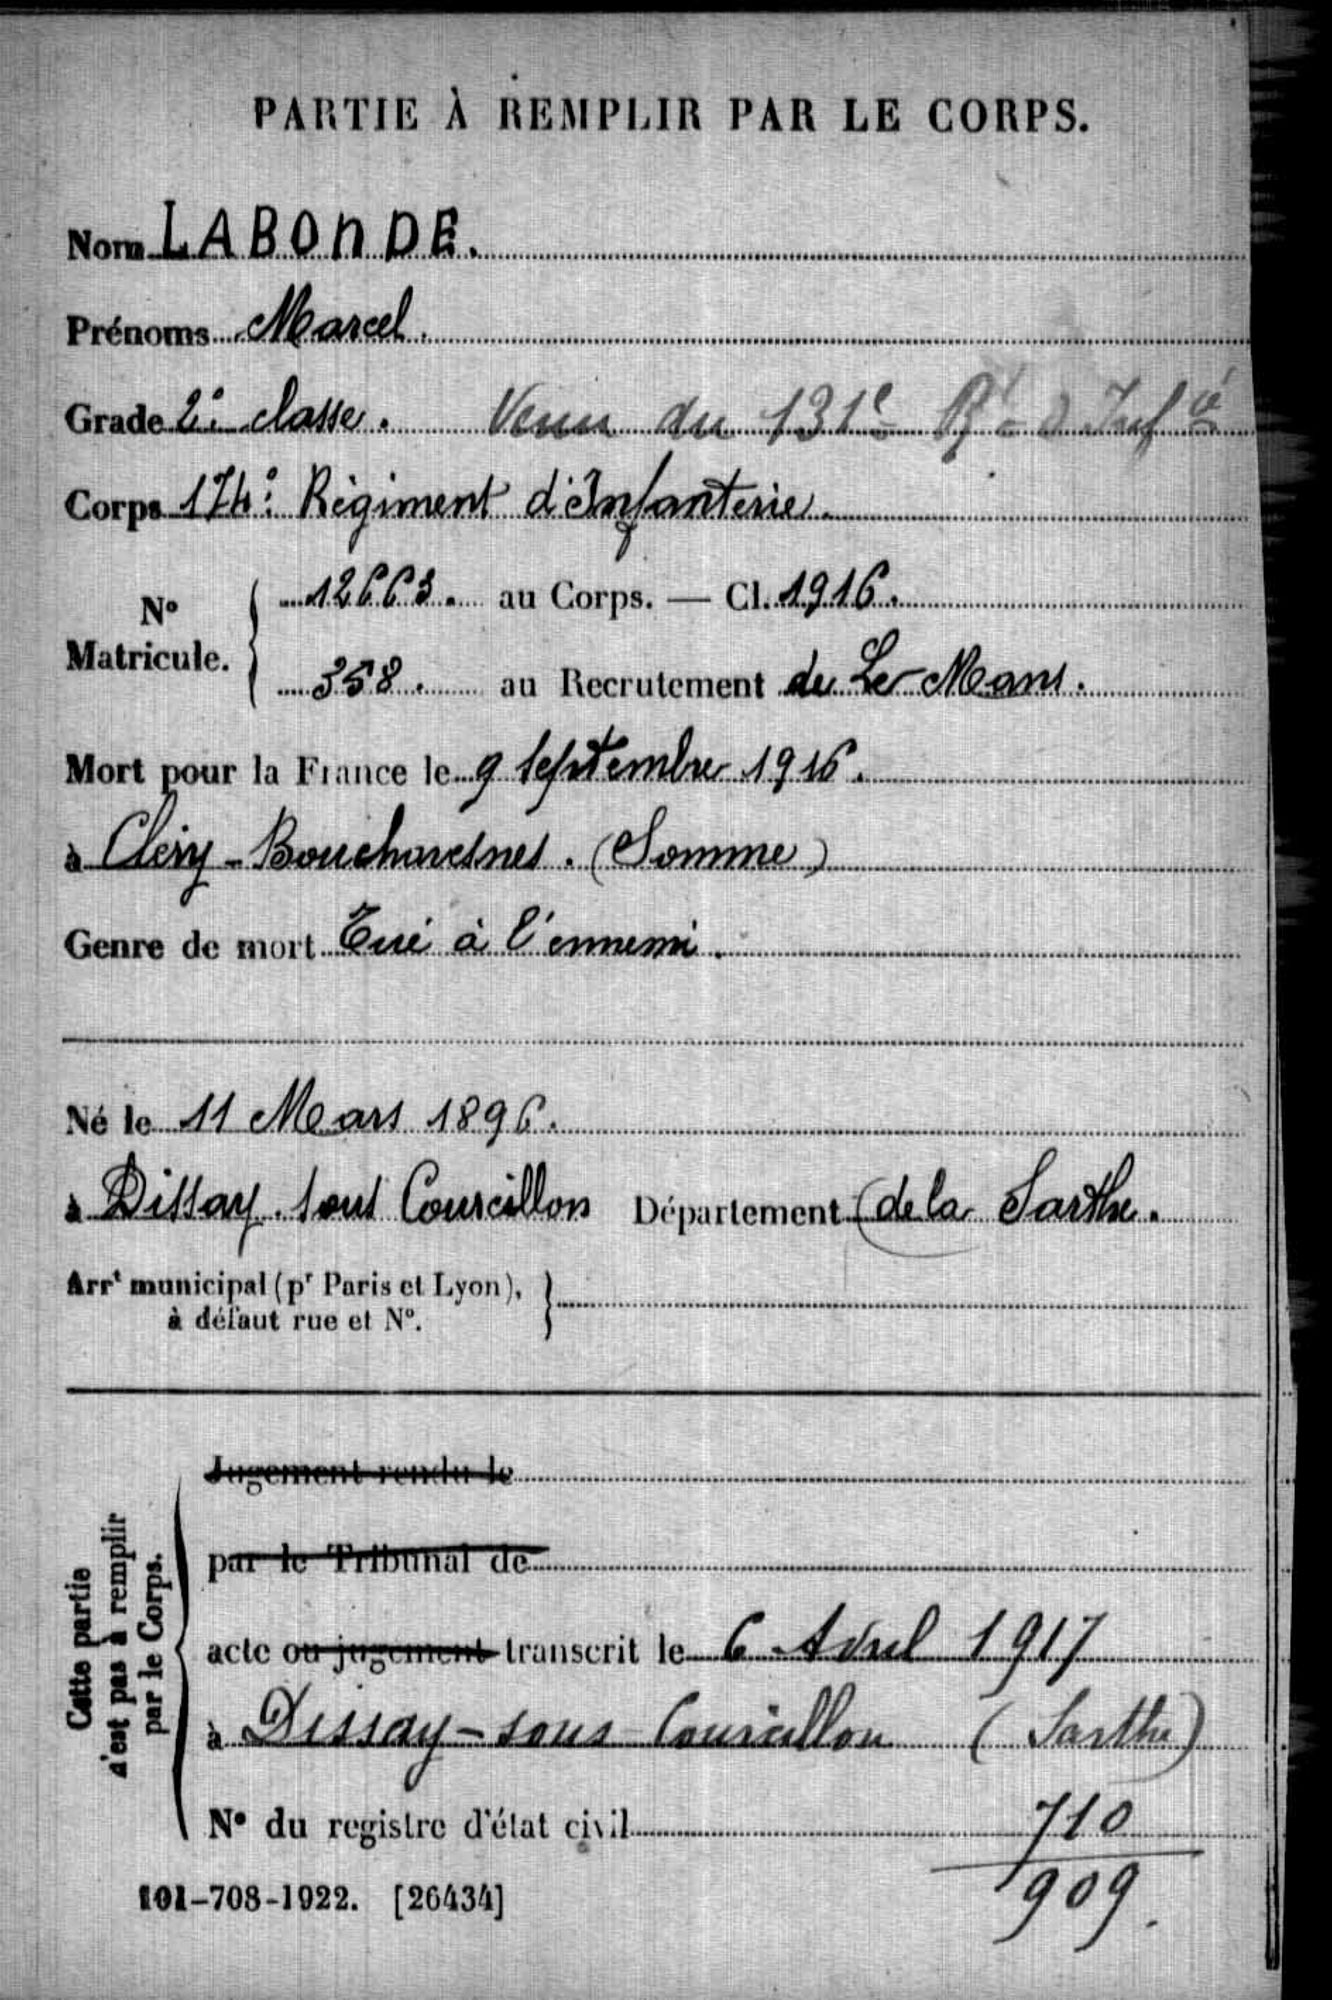 PARTIE À REMPLIR PAR LE CORPS.
Nom LABONDE.
Prénoms Marcel.
Grade 2e classe. Venu du 131e Rt d'Infie
Corps 174e Régiment d'Infanterie.
No Matricule. 12663. au Corps. — Cl. 1916.
358. au Recrutement de Le Mans.
Mort pour la France le 9 Septembre 1916.
à Cléry-Bouchavesnes. (Somme)
Genre de mort Tué à l'ennemi.
Né le 11 Mars 1896.
à Dissay sous Courcillon Département (de la Sarthe.
Arrt municipal (pr Paris et Lyon),
à défaut rue et No.
Cette partie
n'est pas à remplir
par le Corps.
Jugement rendu le
par le Tribunal de
acte ou jugement transcrit le 6 Avril 1917
à Dissay-sous-Courcillon (Sarthe)
No du registre d'état civil 710
909.
101-708-1922. [26434]